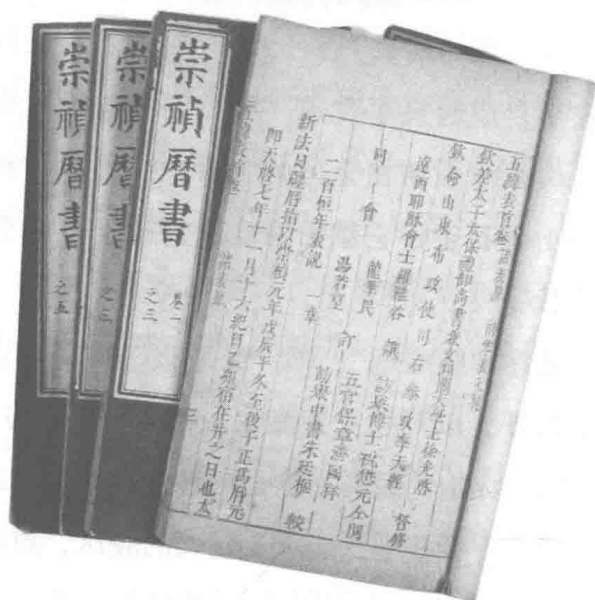 崇禎曆書
之五
崇禎曆書
之三
崇禎曆書
卷一
之二
五緯表首卷
欽差 太子太保禮部尚書兼文淵閣大學士徐光啓
欽命山東布政使司右參政李天經 督修
遠西耶穌會士羅雅谷 譔
訪舉博士祝懋元 仝閱
同 會 龍華民
湯若望 訂
五官保章
前纂中書朱廷樞 較
二百恒年表說 一章
新法日躔曆指以崇禎元年戊辰平冬至後子正爲曆元
即天啓七年十一月十六
宿在井之日也
三